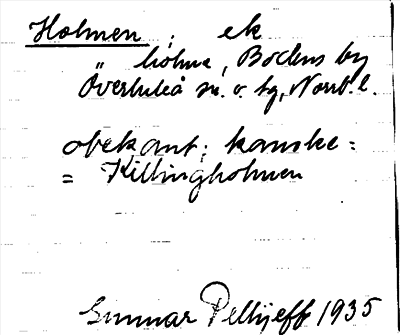 Holmen : ek
" hólmɑ, Bodens by
Överluleå sn. o. tg, Norrb. l.
obekant; kanske =
= Killingholmen
Gunnar Pellijeff 1935